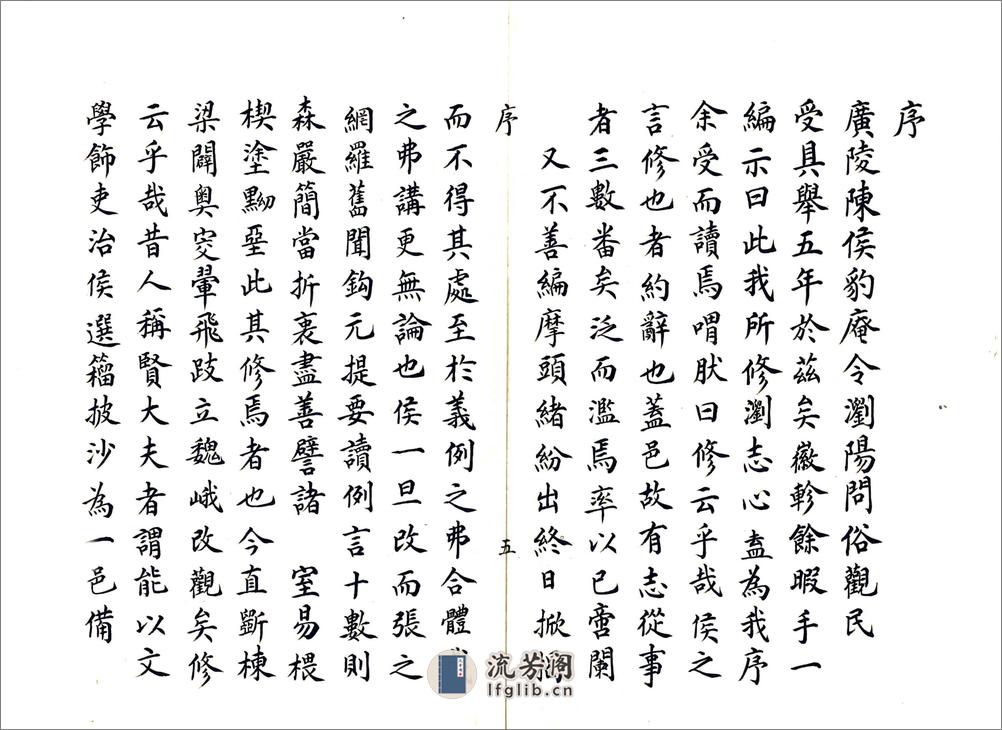 序
廣陵陳侯豹庵令瀏陽問俗觀民
受具舉五年於茲矣徽軫餘暇手一
編示曰此我所修瀏志心盍為我序
余受而讀焉喟肰曰修云乎哉侯之
言修也者約辭也蓋邑故有志從事
者三數番矣泛而濫焉率以已啻闌
又不善編摩頭緒紛出終日掀
序
五
而不得其處至於義例之弗合體
之弗講更無論也侯一旦改而張之
網羅舊聞鈎元提要讀例言十數則
森嚴簡當折衷盡善譬諸 室易椳
楔塗黝堊此其修焉者也今直斷棟
梁闢奧窔暈飛跂立魏峨改觀矣修
云乎哉昔人稱賢大夫者謂能以文
學飾吏治侯選籀披沙為一邑備
流芳閣
lfglib.cn